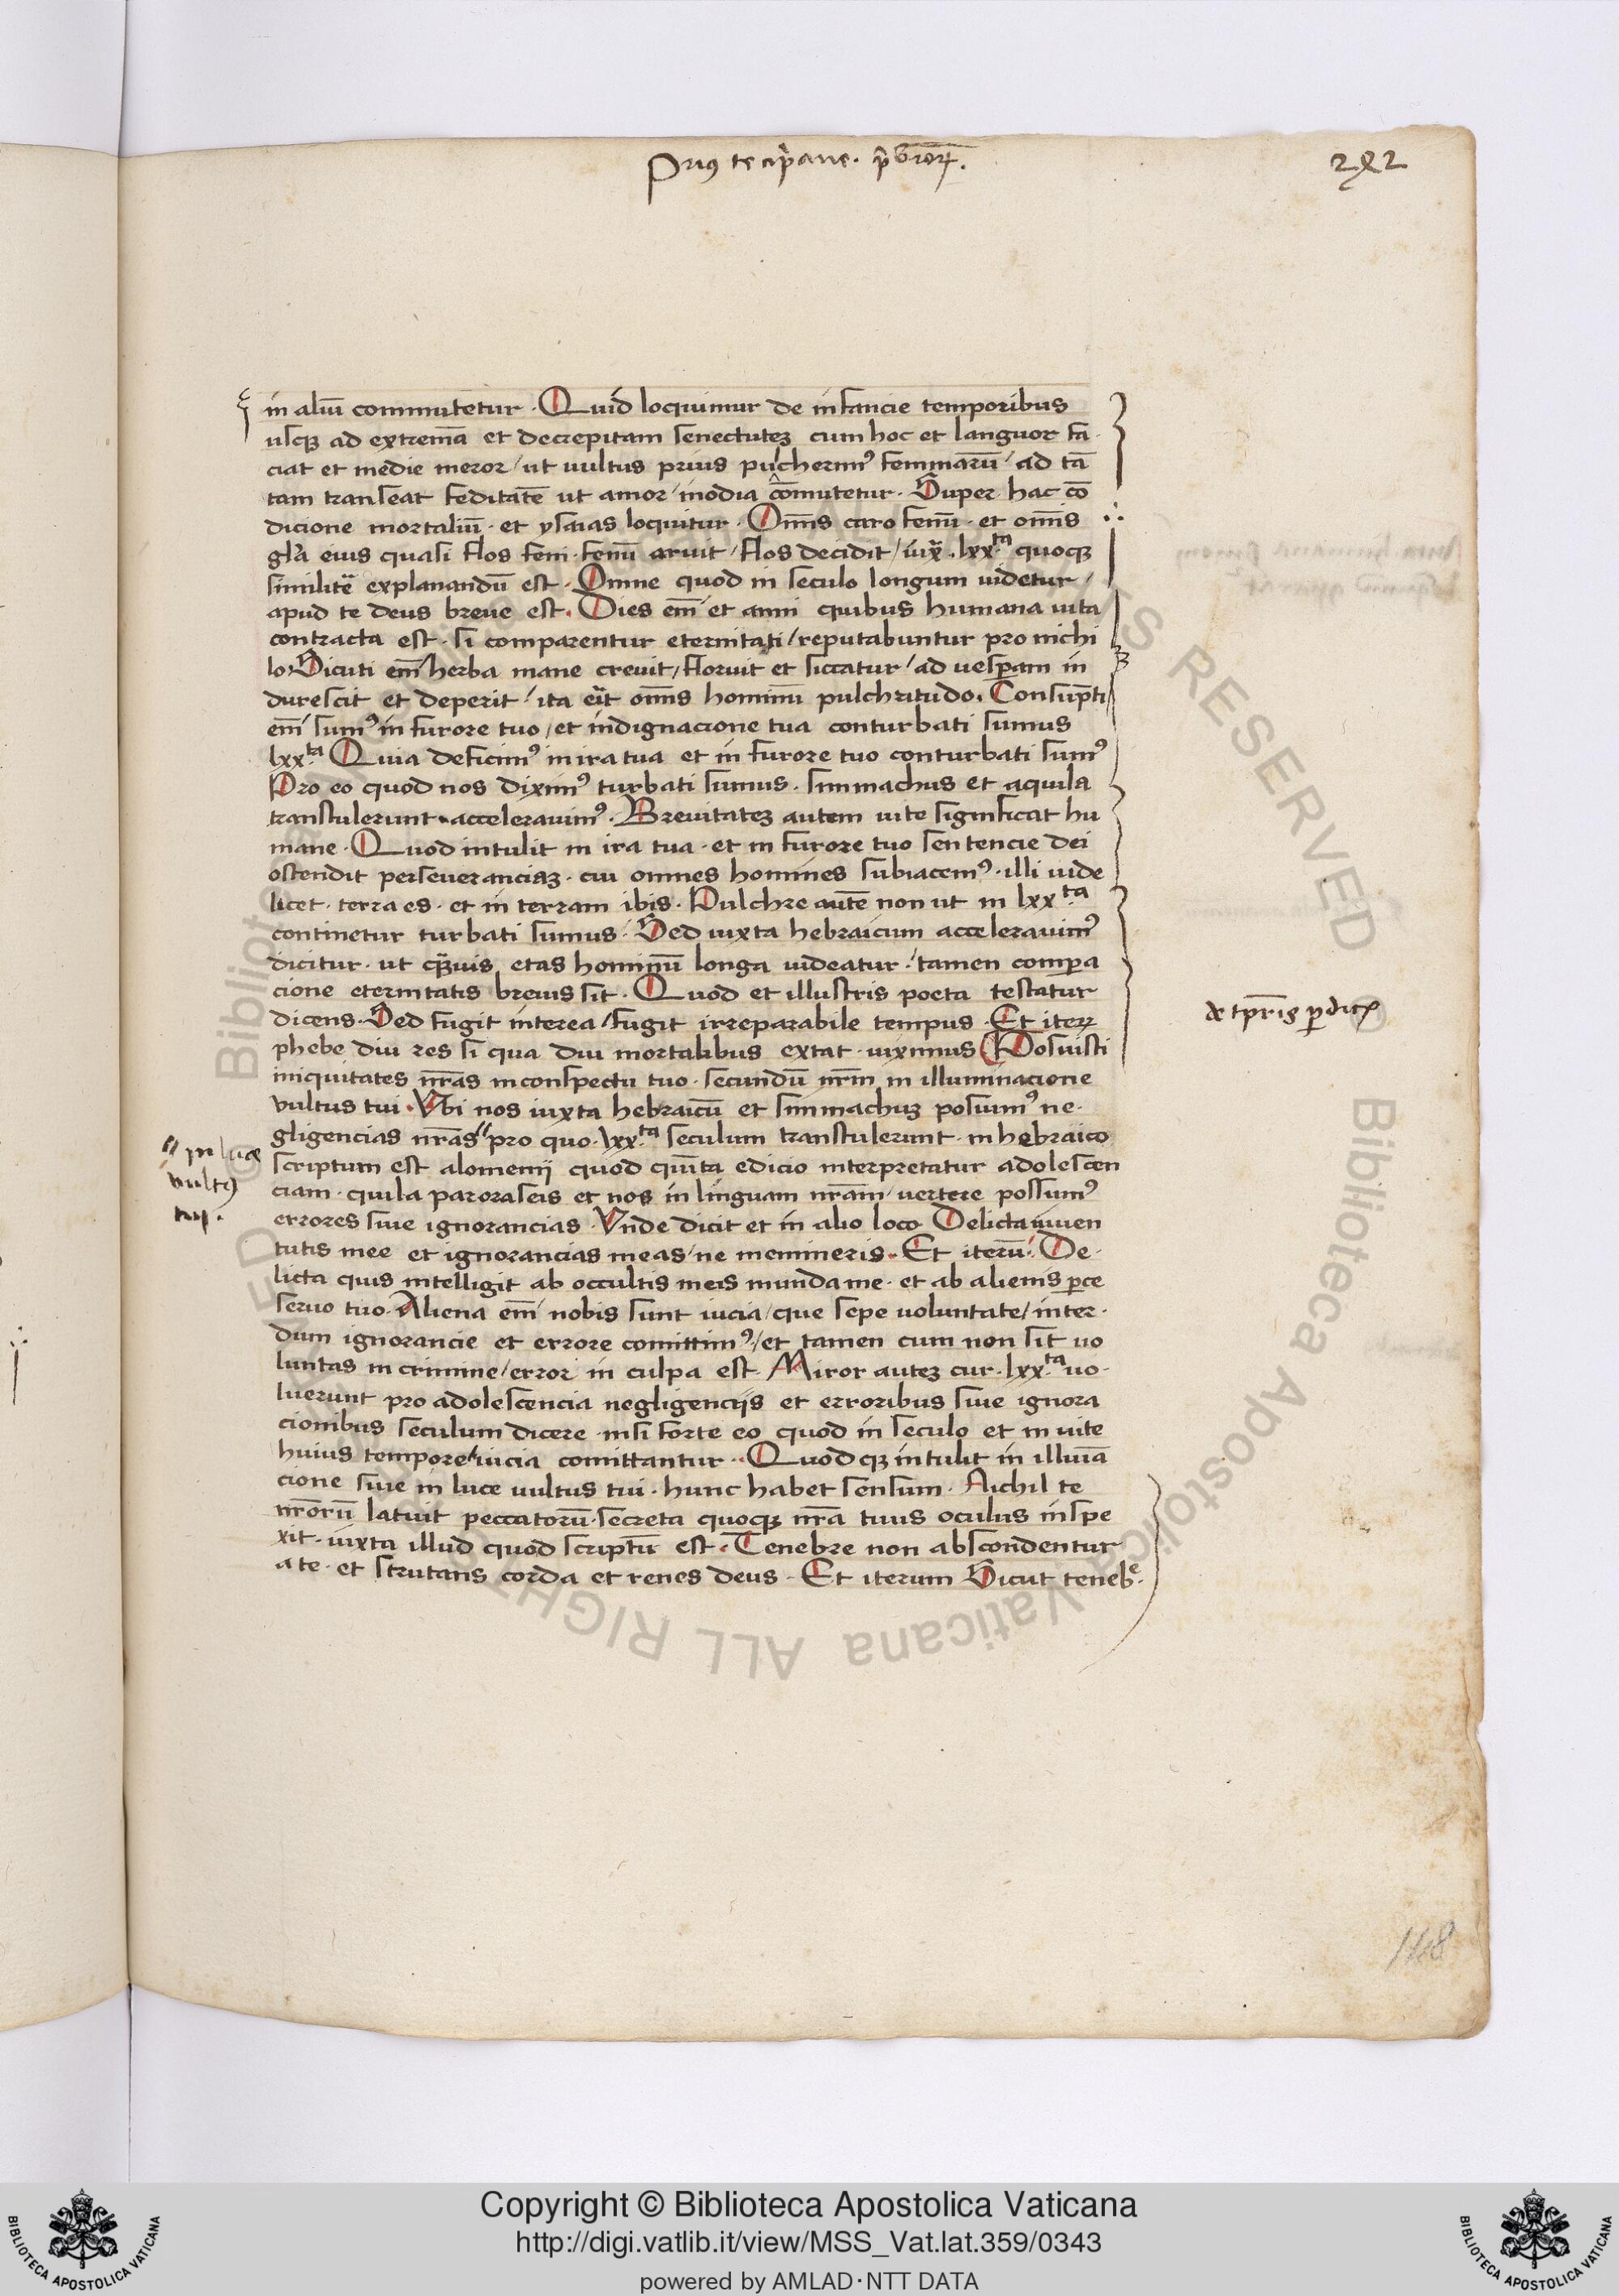 282
in aliū commutetur . Quid loquimur de infancie temporibus
usqꝫ ad extremā et decrepitam senectuteꝫ cum hoc et languor fa
ciat et inedie meror / ut uultus prius pulcherrimꝰ feminarū / ad tā
tam transeat feditatē ut amor / inodia cōmutetur . Super hac cō
dicione mortaliū . et ysaias loquitur . Omīs caro fenū . et omīs
glā eius quasi flos feni . fenū aruit / flos decidit / iux̄ . lxx.ta quoqꝫ
similitē explanandū est . Omne quod in seculo longum uidetur /
apud te deus breue est . Dies em̄ et anni quibus humana uita
contracta est . si comparentur eternitati / reputabuntur pro nichi
lo Sicuti em̄ herba mane creuit / floruit et siccatur / ad uesꝑam in
durescit et deperit / ita erit omīs hominū pulchritudo . Consūpti
em̄ sumꝰ in furore tuo / et indignacione tua conturbati sumus
lxx.ta Quia deficimꝰ in ira tua et in furore tuo conturbati sumꝰ
Pro eo quod nos diximꝰ turbati sumus . simmachus et aquila
transtulerunt accelerauimꝰ . Breuitateꝫ autem uite significat hu
mane . Quod intulit in ira tua . et in furore tuo sentencie dei
ostendit perseueranciaꝫ . cui omnes homines subiacemꝰ . illi uide
licet . terra es . et in terram ibis . Pulchre autē non ut in lxx.ta
continetur turbati sumus . Sed iuxta hebraicum accelerauimꝰ
dicitur . ut quāuis etas hominū longa uideatur / tamen comꝑa
cione eternitatis breuis sit . Quod et illustris poeta testatur
dicens . Sed fugit interea / fugit irreparabile tempus . Et iteꝝ
phebe diu res si qua diu mortalibus extat . uiximus Posuisti
iniquitates nr̄as inconspectu tuo . secundū nr̄m in illuminacione
vultus tui . Vbi nos iuxta hebraicū et simmachuꝫ posuimꝰ ne
gligencias nr̄as // pro quo . lxx.ta seculum transtulerunt . in hebraico
// in luce
vultꝰ
tui .
scriptum est alomenij quod quīta edicio interpretatur adolescen
ciam . quila paroraseis et nos in linguam nr̄am / uertere possumꝰ
errores siue ignorancias . Vnde dicit et in alio loco Delicta iuuen
tutis mee et ignorancias meas / ne memineris . Et iterū . De
licta quis intelligit ab occultis meis munda me . et ab alienis ꝑce
seruo tuo . Aliena em̄ nobis sunt uicia / que sepe uoluntate / inter
dum ignorancie et errore comittimꝰ / et tamen cum non sit uo
luntas in crimine / error in culpa est . Miror auteꝫ cur . lxx.ta uo
luerunt pro adolescencia negligencijs et erroribus siue ignora
cionibus seculum dicere . nisi forte eo quod in seculo et in uite
huius tempore uicia comittantur . Quodqꝫ intulit in illuīa
cione siue in luce uultus tui . hunc habet sensum . Nichil te
nr̄orū latuit peccatorū . secreta quoqꝫ nr̄a tuus oculus inspe
xit . iuxta illud quod scriptū est . Tenebre non abscondentur
a te . et scrutans corda et renes deus . Et iterum Sicut tenebͤ .
148
Copyright © Biblioteca Apostolica Vaticana
http://digi.vatlib.it/view/MSS_Vat.lat.359/0343
powered by AMLAD · NTT DATA
BIBLIOTECA APOSTOLICA VATICANA
BIBLIOTECA APOSTOLICA VATICANA